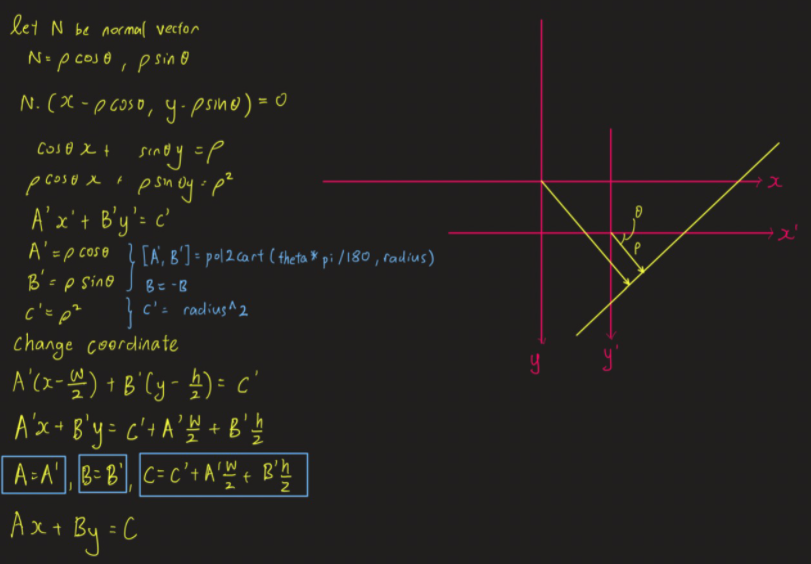 let N be normal vector
N = ρ cosθ , ρ sinθ
N. (x - ρcosθ, y - ρsinθ) = 0
cosθ x + sinθ y = ρ
ρ cosθ x + ρ sinθ y = ρ²
A'x' + B'y' = c'
A' = ρ cosθ
B' = ρ sinθ
C' = ρ²
[A', B'] = pol2cart (theta * pi /180, radius)
B = -B
C' = radius^2
Change coordinate
A'(x - w/2) + B'(y - h/2) = C'
A'x + B'y = C' + A' w/2 + B' h/2
A = A' , B = B' , C = C' + A' w/2 + B' h/2
Ax + By = C
x
θ
x'
ρ
y
y'